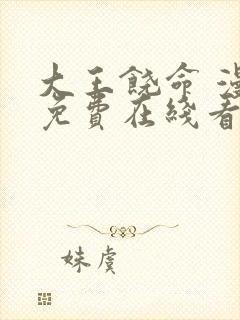 大王饶命 漫
免費在綫看
妹虞